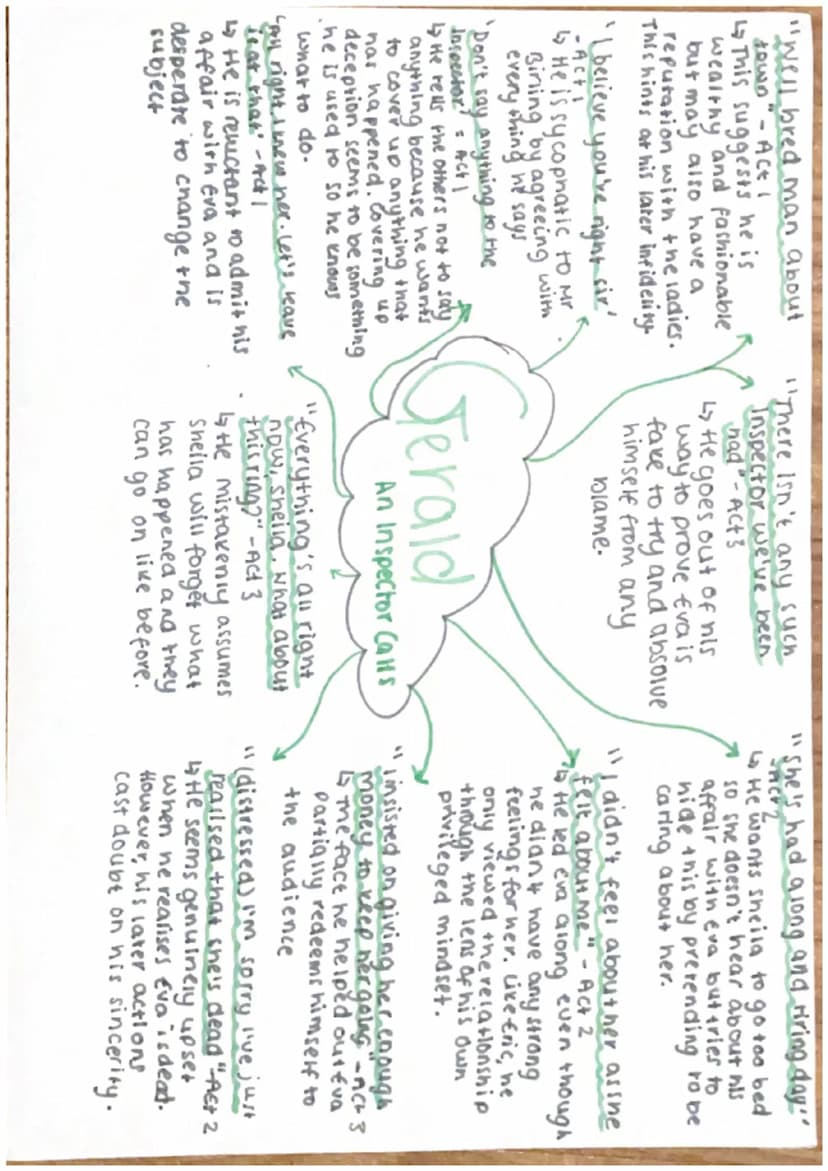 "Well bred man about
town" - Act 1
↳ This suggests he is
wealthy and fashionable
but may also have a
reputation with the ladies.
This hints at his later infidelity.
"There isn't any such
Inspector we've been
had" - Act 3
↳ He goes out of his
way to prove Eva is
fake to try and absolve
himself from any
blame.
"She's had along and tiring day"
- Act 2
↳ He wants sheila to go too bed
so she doesn't hear about his
affair with Eva but tries to
hide this by pretending to be
caring about her.
'I believe you're right sir'
- Act 1
↳ He is sycophatic to Mr
Birling by agreeing with
everything he says
'Don't say anything to the
Inspector' - Act 1
↳ He tells the others not to say
anything because he wants
to cover up anything that
has happened. Covering up
deception seems to be something
he is used to so he knows
what to do.
"All right I knew her. Let's leave
it at that" - Act 1
↳ He is reluctant to admit his
affair with Eva and is
desperate to change the
subject
Gerald
An Inspector Calls
"Everything's all right
now, Sheila. What about
this ring?" - Act 3
↳ He mistakenly assumes
Sheila will forget what
has happened and they
can go on like before.
"I didn't feel about her as she
felt about me" - Act 2
↳ He led Eva along even though
he didn't have any strong
feelings for her. Like Eric, he
only viewed the relationship
through the lens of his own
privileged mindset.
"I insisted on giving her enough
money to keep her going" - Act 3
↳ The fact he helped out Eva
partially redeems himself to
the audience
"(distressed) I'm sorry I've just
realised that she's dead" - Act 2
↳ He seems genuinely upset
when he realises Eva is dead.
However, his later actions
cast doubt on his sincerity.